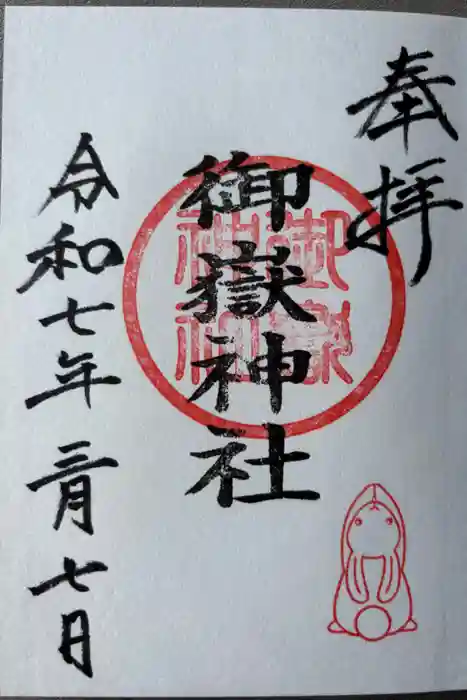 奉拝
御嶽神社
御嶽神社
令和七年三月七日